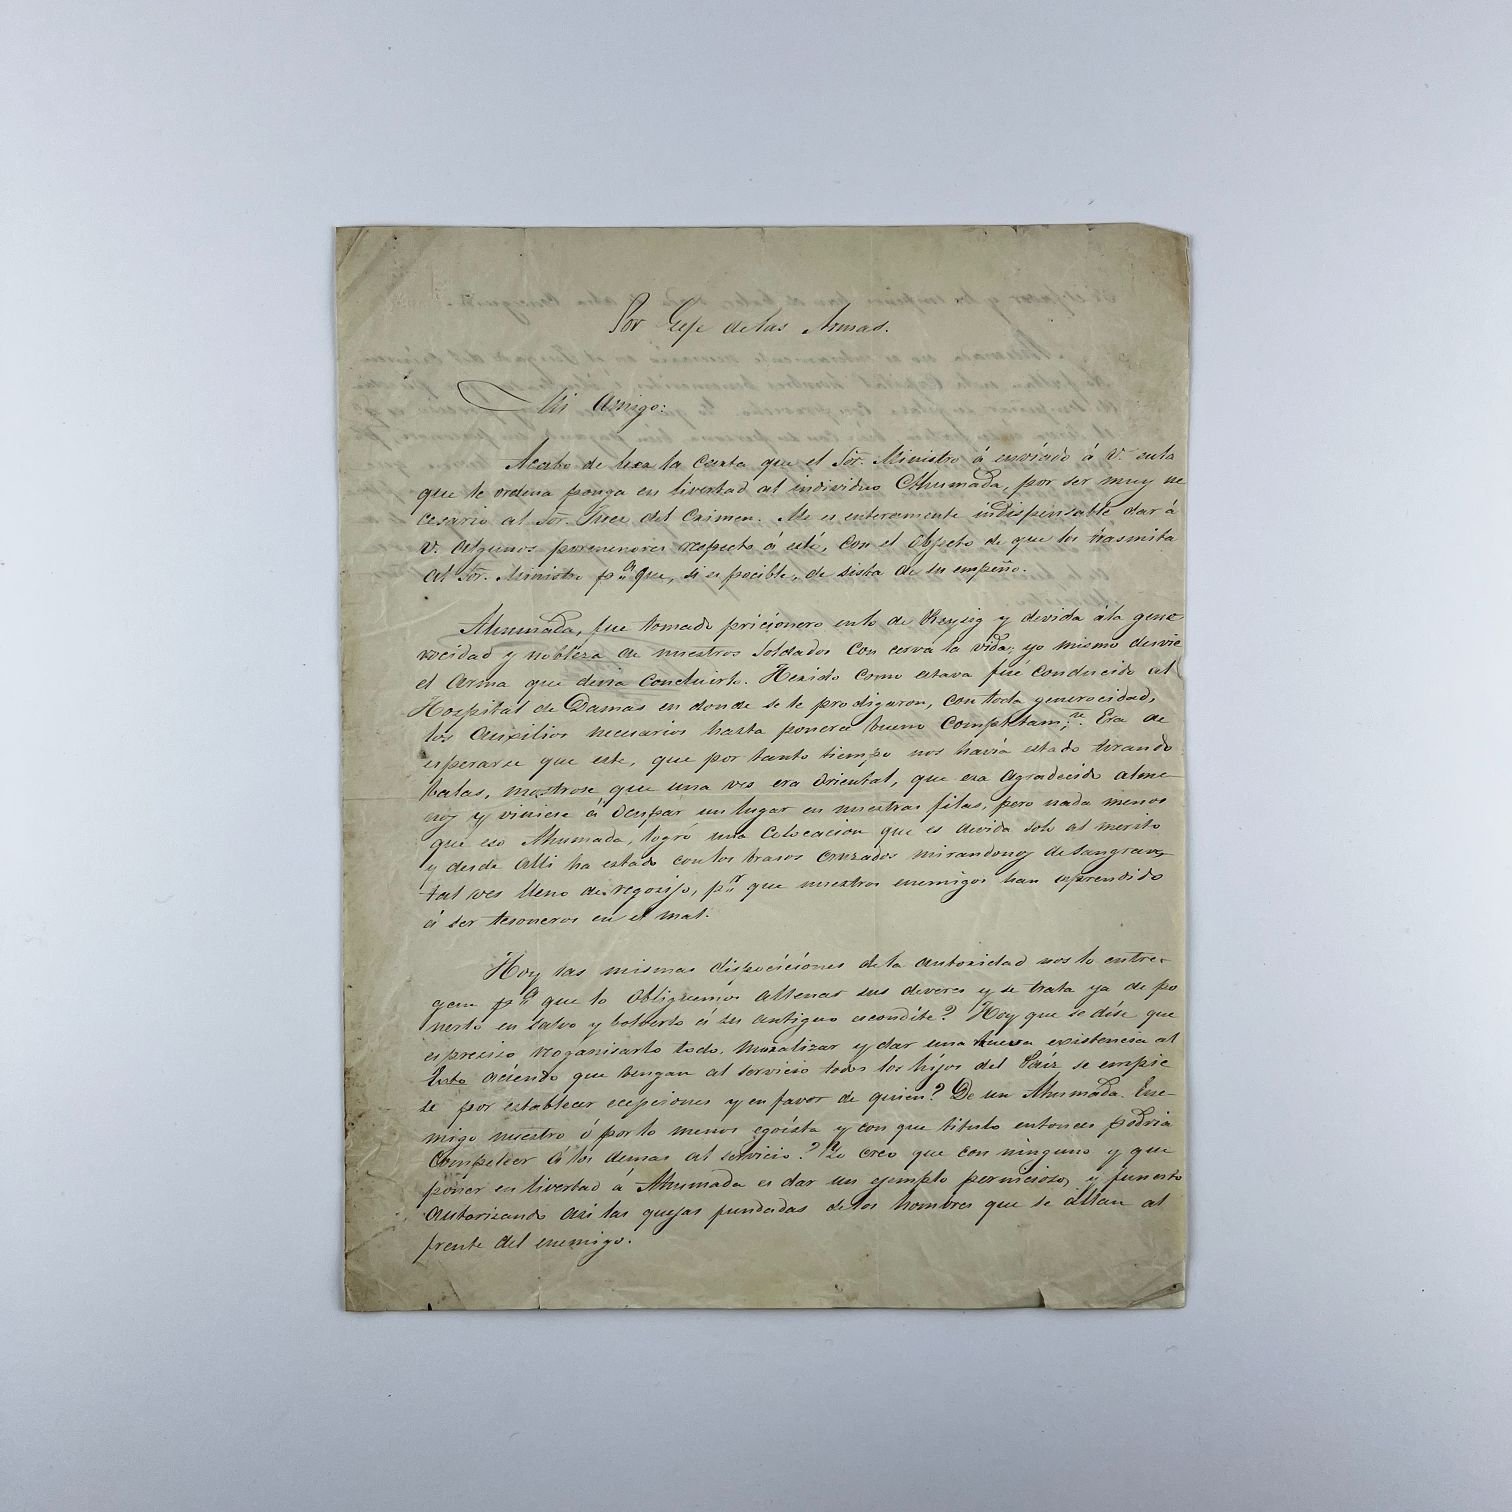 Sor Gefe de las Armas.
Mi Amigo:
Acabo de leer la Carta que el Sor. Ministro á enviado á V. en la
que le ordena ponga en livertad al individuo Ahumada, por ser muy ne
cesario al Sor. Juez del Crimen. Me es enteramente indispensable dar á
V. algunos pormenores respecto á esté, con el Objeto de que los trasmita
al Sor. Ministro pa. que, si es pocible, de sista de su empeño.
Ahumada, fue tomado pricionero en lo de Reysig y devida á la gene
rocidad y nobleza de nuestros Soldados Con cerva la vida; yo mismo desvie
el Arma que devia Concluirlo. Herido Como estava fué Conducido al
Hospital de Damas en donde se le prodigaron, con toda generocidad,
los Auxilios necesarios hasta ponerce bueno Completamte. Era de
esperarse que este, que por tanto tiempo nos havia estado tirando
balas, mostrose que una ves era Oriental, que era Agradecido alme
nos y viniese á Ocupar un lugar en nuestras filas, pero nada menos
que eso Ahumada, logró una Colocacion que es devida solo al merito
y desde Alli ha estado con los brasos Cruzados mirandonos desangrar,
tal ves lleno de regosijo, pa. que nuestros enemigos han aprendido
á ser tesoneros en el mal.
Hoy las mismas dispociciones de la Autoridad nos lo entre-
gan pa. que lo Obliguemos allenar sus deveres y se trata ya de po
nerlo en salvo y bolverlo á su antiguo escondite? Hoy que se dise que
es preciso reoganisarlo todo, moralizar y dar una nueva existencia al
todo aciendo que bengan al servicio todos los hijos del País se empie
se por establecer ecepciones y en favor de quien? De un Ahumada. Ene-
migo nuestro ó por lo menos egoista y con que titulo entonces podria
Compeler á los demas al servicio? Yo creo que con ninguno y que
poner en livertad á Ahumada es dar un egemplo pernicioso, y funesto
Autorizando asi las quejas fundadas de los hombres que se allan al
frente del enemigo.